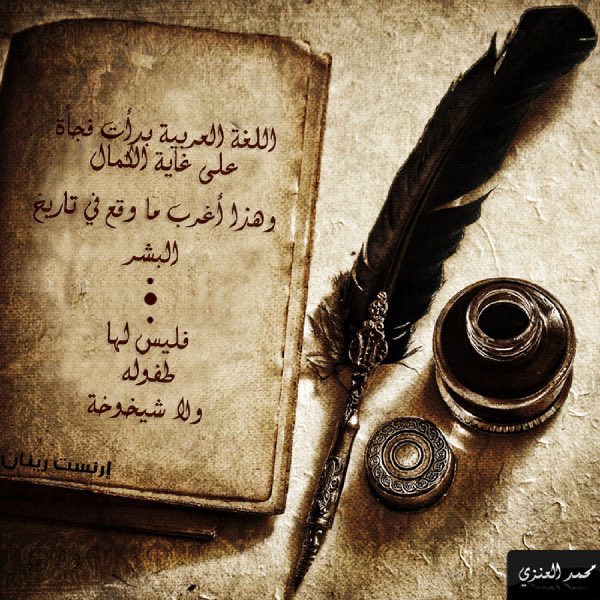 اللغة العربية بدأت فجأة
على غاية الكمال
وهذا أغرب ما وقع في تاريخ
البشر
فليس لها
طفوله
ولا شيخوخة
إرنست رينان
محمد العنزي